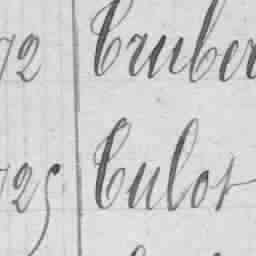 72 Cruber
725 Culot